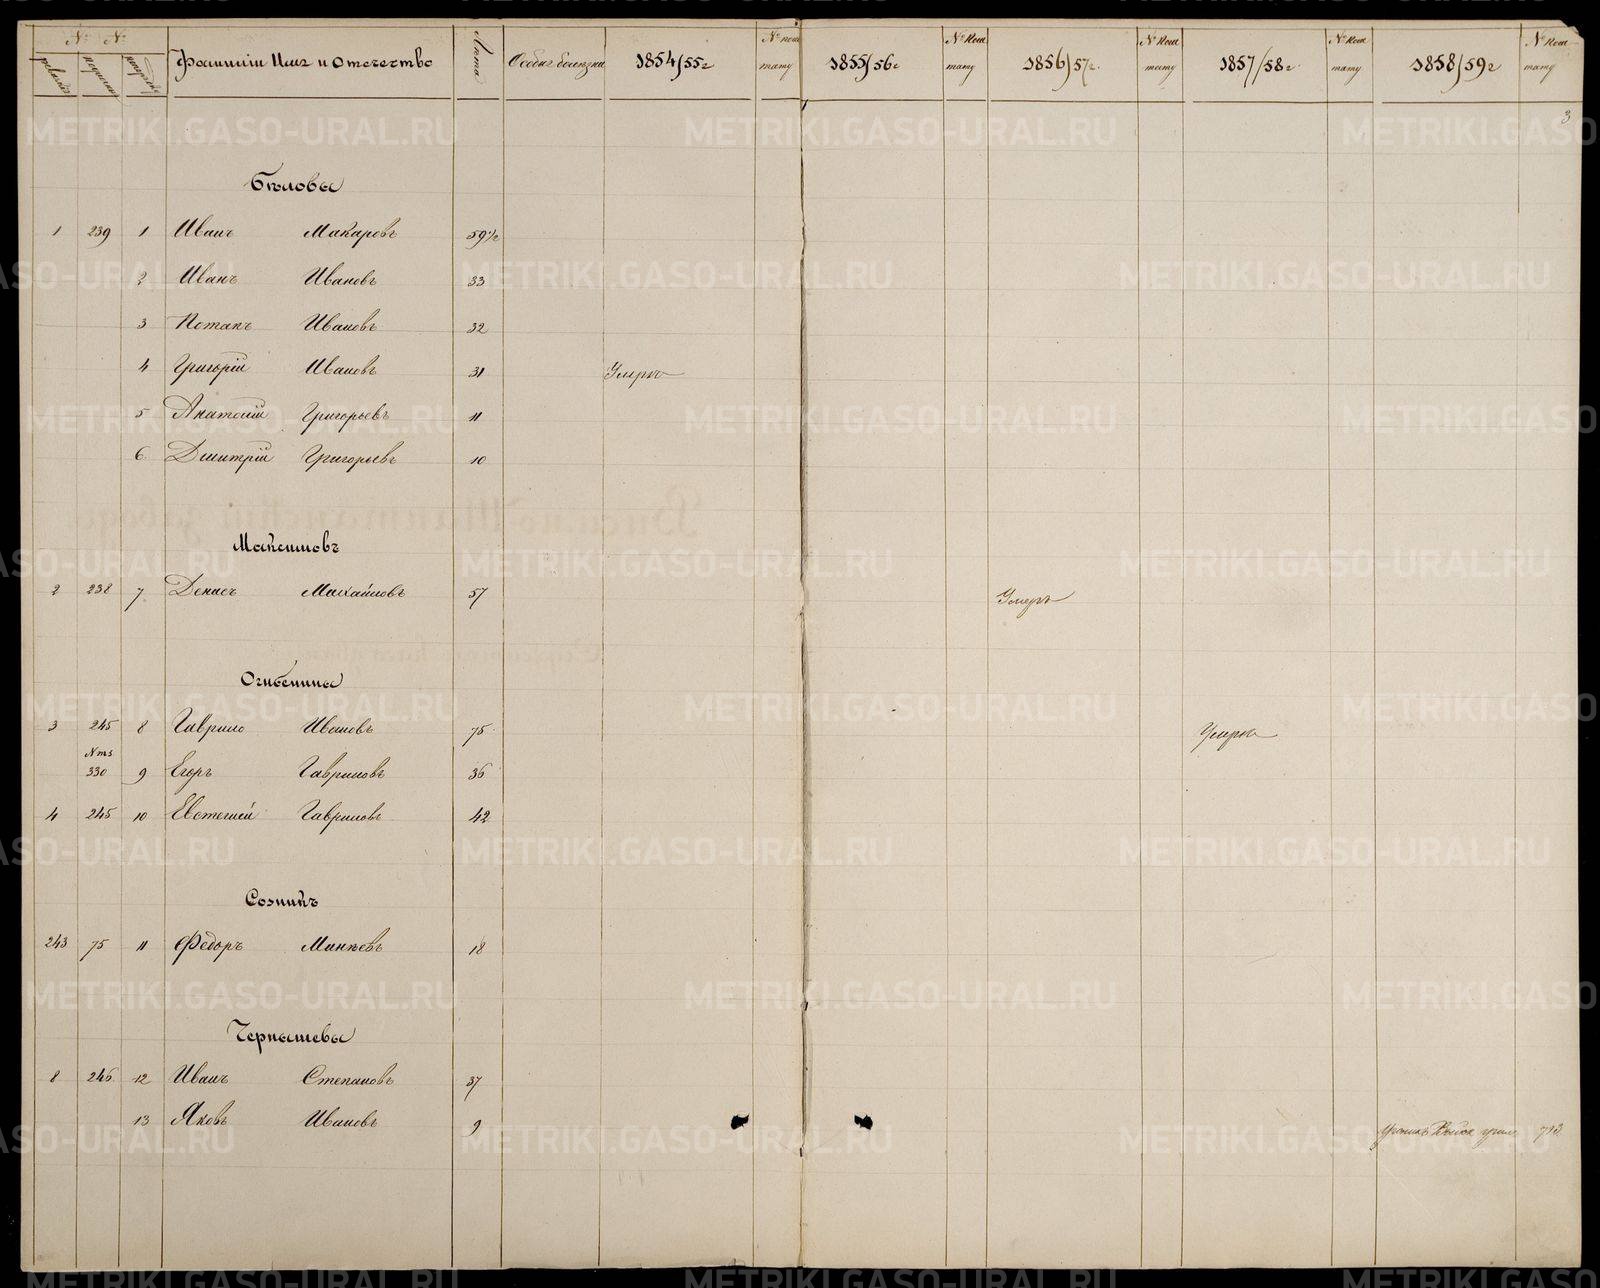 № №
ревизск подушн порядк Фамиліи Имя и Отечество Лета Особыя болезни 1854/55 г № ком нату 1855/56 г № ком нату 1856/57 г. № ком нату 1857/58 г № ком нату 1858/59 г № ком нату
3
Бѣловы
1 239 1 Иванъ Макаровъ 59½
2 Иванъ Ивановъ 33
3 Потапъ Ивановъ 32
4 Григорій Ивановъ 31 Умеръ
5 Анатолій Григорьевъ 11
6 Дмитрій Григорьевъ 10
Максимовъ
2 238 7 Денисъ Михайловъ 57 Умеръ
Огибенины
3 245 8 Гаврило Ивановъ 75 Умеръ
330 9 Егоръ Гавриловъ 36
4 245 10 Евстегней Гавриловъ 42
Созыкинъ
243 75 11 Федоръ Минѣевъ 18
Чернышевы
8 246 12 Иванъ Степановъ 37
13 Яковъ Ивановъ 9 793
METRIKI.GASO-URAL.RU